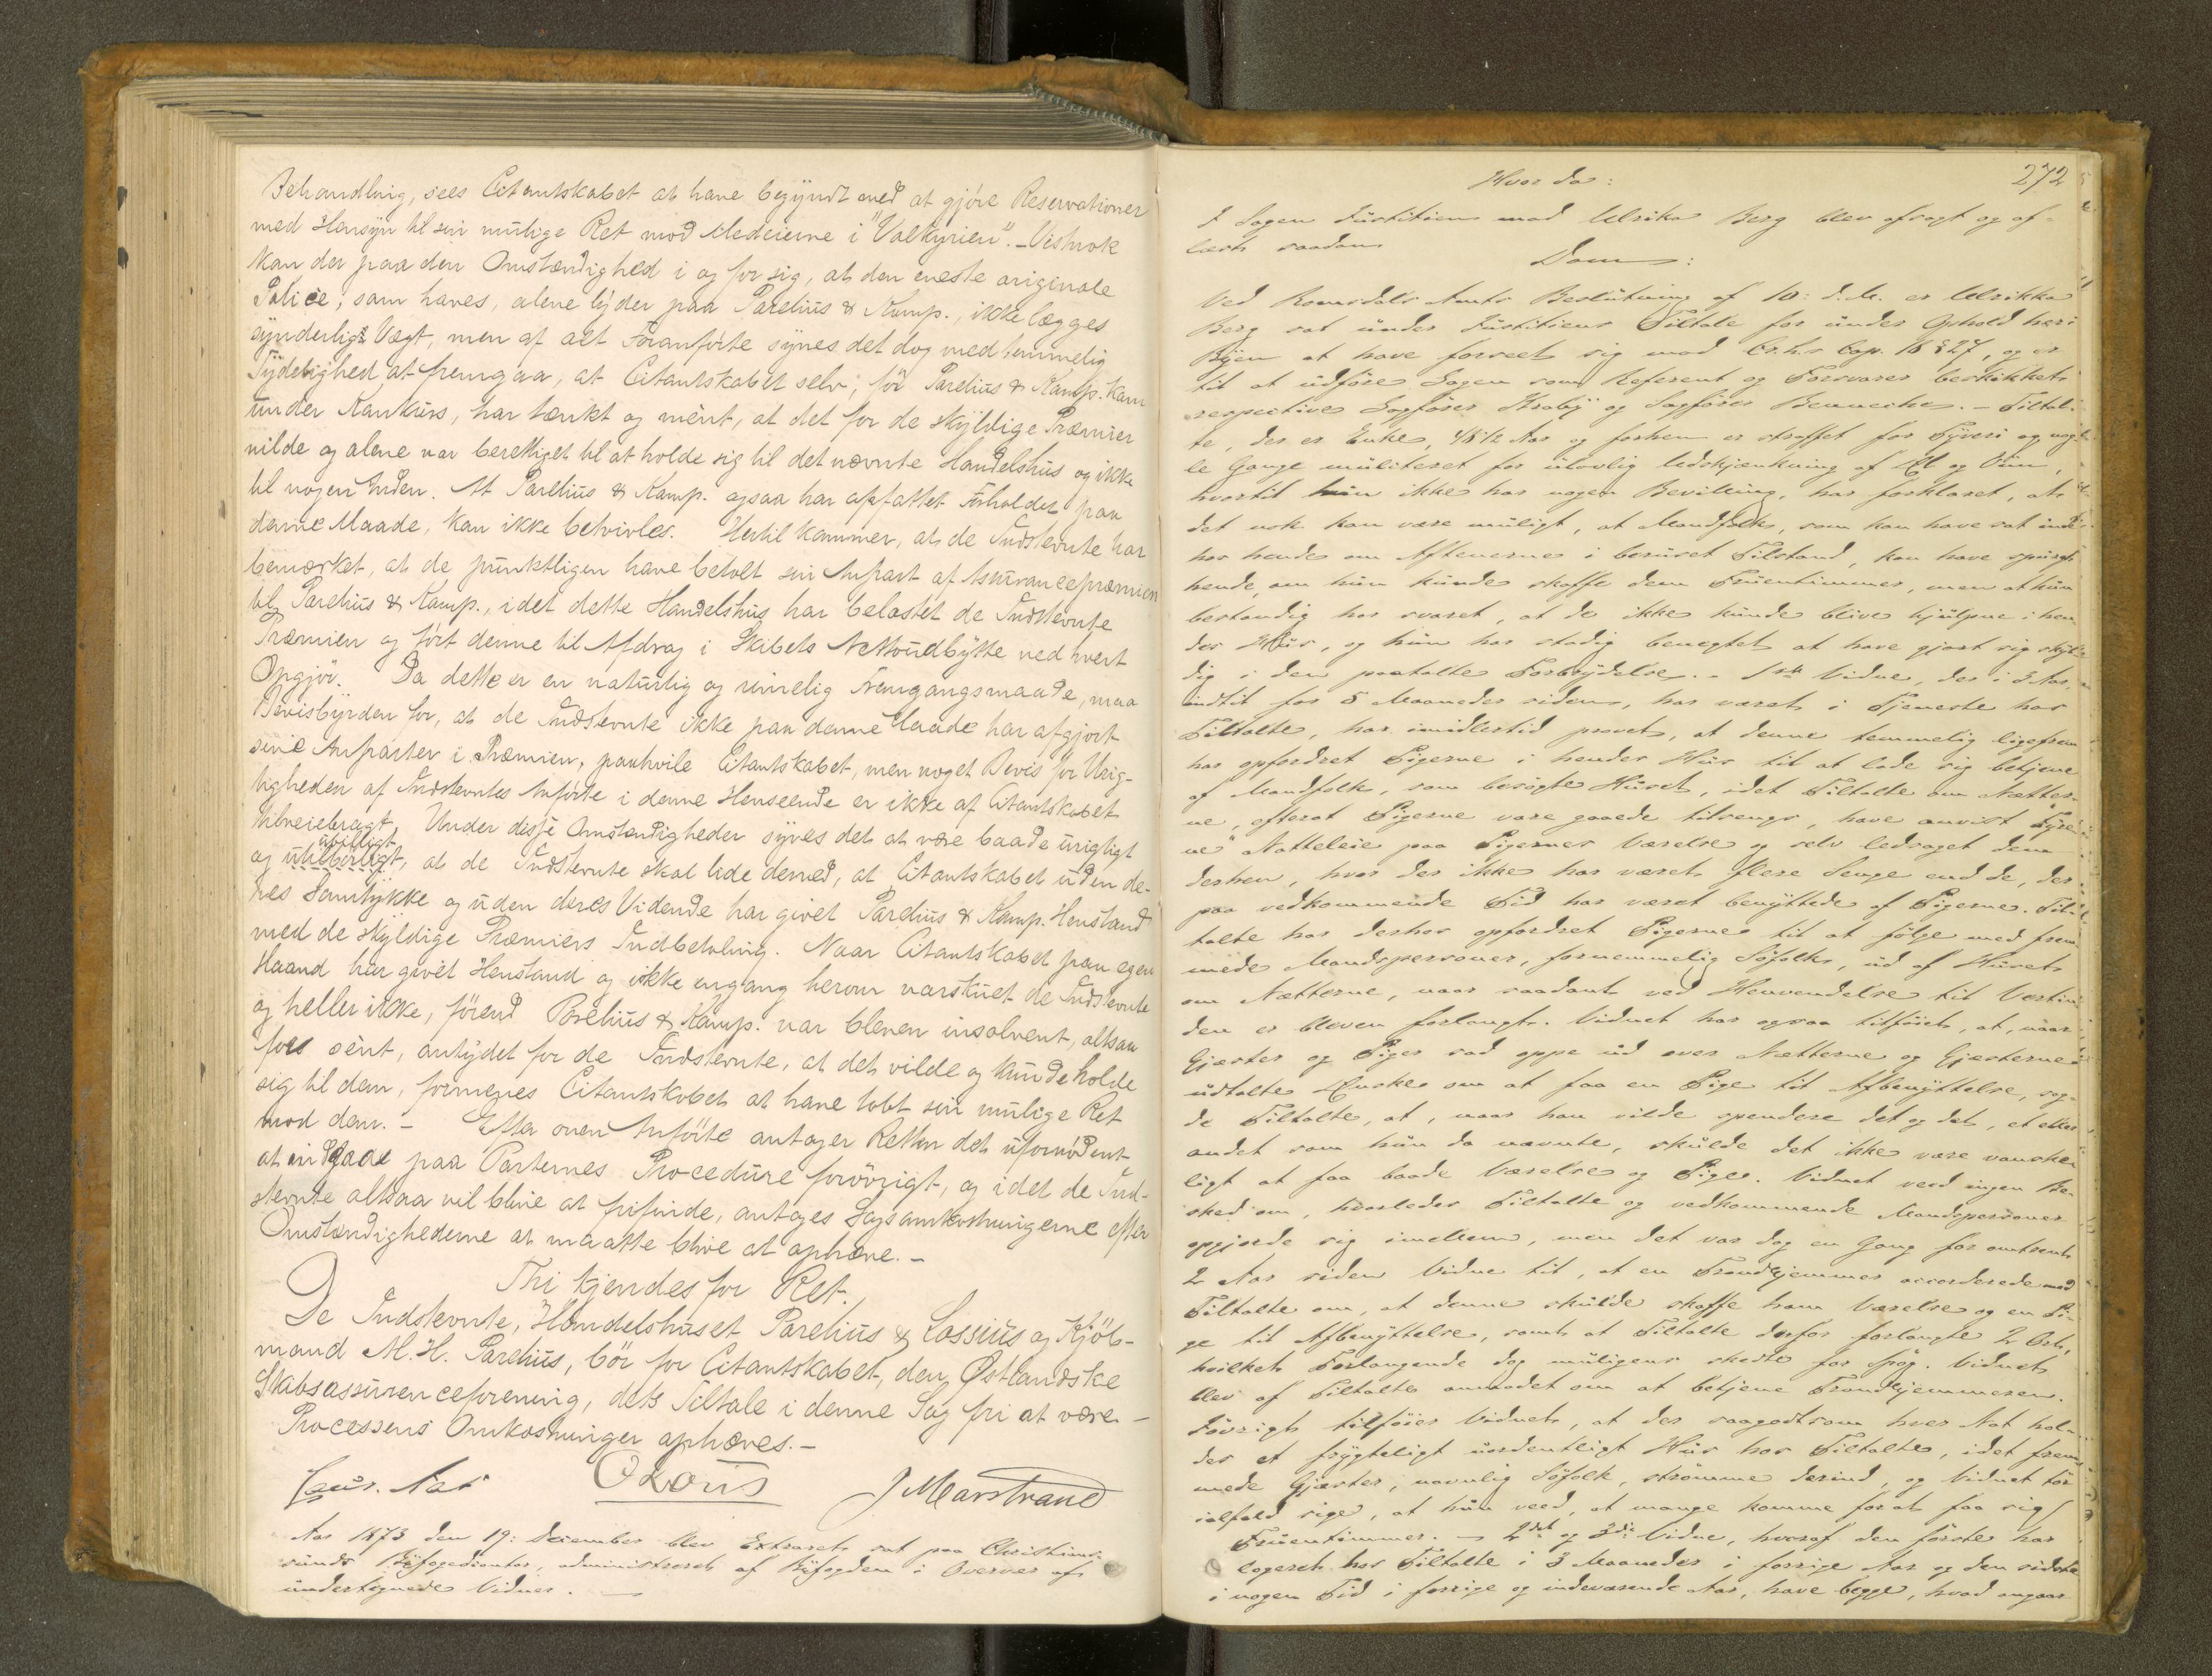 Behandling, sees Citantskabet at have begyndt med at gjöre Reservationer
med Hensyn til sin mulige Ret mod Medeierne i "Valkyrien". - Vistnok
kan der paa den Omstændighed i og for sig, at den eneste originale
Police, som haves, alene lyder paa Parelius & Komp., ikke lægges
synderligt Vægt, men af alt Foranförte synes det dog med temmelig
Tydelighed at fremgaa, at Citantskabet selv, för Parelius & Komp. kom
under Konkurs, har tænkt og ment, at det for de skyldige Præmier
vilde og alene var berettiget til at holde sig til det nævnte Handelshus og ikke
til nogen Anden. At Parelius & Komp. ogsaa har opfattet Forholdet paa
denne Maade, kan ikke betvivles. Hertil kommer, at de Indstevnte har
bemærket, at de punktligen have betalt sin Anpart af Assurancepræmien
til Parelius & Komp., idet dette Handelshus har belastet de Indstevnte
Præmien og fört denne til Afdrag i Skibets Nettoudbytte ved hvert
Opgjör. Da dette er en naturlig og rimelig Fremgangsmaade, maa
Bevisbyrden for, at de Indstevnte ikke paa denne Maade har afgjort
sine Anparter i Præmien, paahvile Citantskabet, men noget Bevis for Urig-
tigheden af Indstevntes Anförte i denne Henseende er ikke af Citantskabet
tilveiebragt. Under disse Omstændigheder synes det at være baade urigtigt
ubilligt
og utilbörligt, at de Indstevnte skal lide derved, at Citantskabet uden de-
res Samtykke og uden deres Vidende har givet Parelius & Komp. Henstand
med de skyldige Præmiers Indbetaling. Naar Citantskabet paa egen
Haand har givet Henstand og ikke engang herom varskuet de Indstevnte
og heller ikke, förend Parelius & Komp. var bleven insolvent, altsaa
for sent, antydet for de Indstevnte, at det vilde og kunde holde
sig til dem, formenes Citantskabet at have tabt sin mulige Ret
mod dem. - Efter oven Anförte antager Retten det ufornödent
at indgaa paa Parternes Procedure forövrigt, og idet de Ind-
stevnte altsaa vil blive at frifinde, antages Sagsomkostningerne efter
Omstændighederne at maatte blive at ophæve. -
Thi kjendes for Ret.
De Indstevnte, Handelshuset Parelius & Lossius og Kjöb-
mand M. H. Parelius, bör for Citantskabet, den Östlandske
Skibsassuranceforening, dets Tiltale i denne Sag fri at være -
Processens Omkostninger ophæves. -
O Lous J Marstrand
Aar 1873 den 19: December blev Extraret sat paa Christian-
sunds Byfogedcontor, administreret af Byfogden i Overvær af
undertegnede Vidner. -
272
Hvor da:
I Sagen Justitien mod Ulrika Berg blev afsagt og af-
læst saadan
Dom:
Ved Romsdals Amts Beslutning af 10: d.M. er Ulrikka
Berg sat under Justitiens Tiltale for under Ophold her i
Byen at have forseet sig mod Cr.L.s Cap. 18 § 27, og er
til at udföre Sagen som Referent og Forsvarer beskikket
respective Sagförer Kraby og Sagförer Benneche. - Tiltal-
te, der er Enke, 48 1/2 Aar og forhen er straffet for Tyveri og nog-
le Gange mulcteret for ulovlig Udskjænkning af Öl og Viin,
hvortil hun ikke har nogen Bevilling, har forklaret, at
det nok kan være muligt, at Mandfolk, som kan have sat inde
hos hende om Aftenerne i beruset Tilstand, kan have spurgt
hende, om hun kunde skaffe dem Fruentimmer, men at hun
bestandig har svaret, at de ikke kunde blive hjulpne i hen-
des Huus, og hun har stadig benegtet at have gjort sig skyl-
dig i den paatalte Forbrydelse. - 1ste Vidne, der i 3 Aar,
indtil for 5 Maaneder siden, har været i Tjeneste hos
Tiltalte, har imidlertid provet, at denne temmelig ligefrem
har opfordret Pigerne i hendes Huus til at lade sig betjene
af Mandfolk, som besögte Huset, idet Tiltalte om Nætter-
ne, efterat Pigerne vare gaaede tilsengs, have anvist Fyre-
ne Natteleie paa Pigernes Værelse og selv ledsaget dem
derhen, hvor der ikke har været flere Senge end de, der
paa vedkommende Tid har været benyttede af Pigerne. Til-
talte har derhos opfordret Pigerne til at fölge med frem-
mede Mandspersoner, fornemmelig Söfolk, ud af Huset
om Nætterne, naar saadant ved Henvendelse til Vertin-
den er bleven forlangt. Vidnet har ogsaa tilföiet, at, naar
Gjæster og Piger sad oppe ud over Nætterne og Gjæsterne
udtalte Önske om at faa en Pige til Afbenyttelse, sag-
de Tiltalte, at, naar han vilde spendere det og det, et eller
andet som hun da nævnte, skulde det ikke være vanske-
ligt at faa baade Værelse og Pige. Vidnet veed ingen Be-
sked om, hvorledes Tiltalte og vedkommende Mandspersoner
opgjorde sig imellem, men det var dog en Gang for omtrent
2 Aar siden Vidne til, at en Trondhjemmer accorderede med
Tiltalte om, at denne skulde skaffe ham Værelse og en Pi-
ge til Afbenyttelse, samt at Tiltalte derfor forlangte 2 Ort,
hvilket Forlangende dog muligens skedte for Spög. Vidnet
blev af Tiltalte anmodet om at betjene Trondhjemmeren.
Iövrigt tilföier Vidnet, at der saagodtsom hver Nat hol-
des et frygteligt uordentligt Huus hos Tiltalte, idet frem-
mede Gjæster, navnlig Söfolk, strömme derind, og Vidnet tör
ialfald sige, at hun veed, at mange komme forat faa sig
Fruentimmer. - 2det og 3die Vidne, hvoraf den förste har
logeret hos Tiltalte i 3 Maaneder i forrige Aar og den sidste
i nogen Tid i forrige og indeværende Aar, have begge, hvad angaar